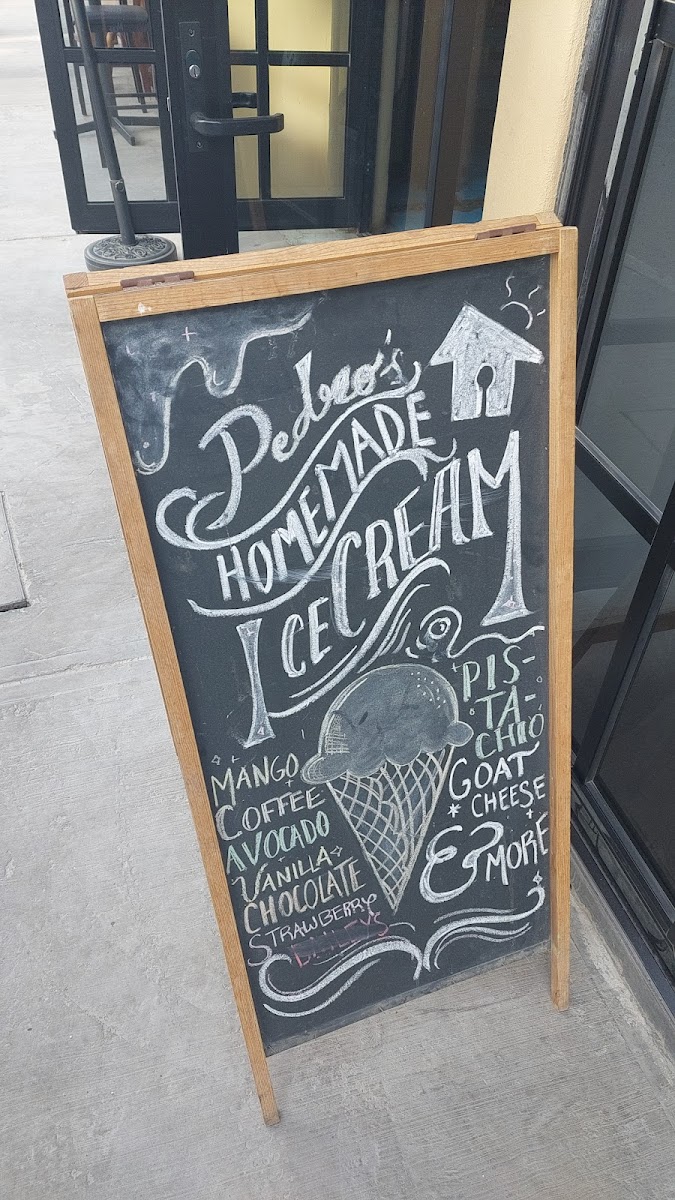 Pedro's
HOMEMADE
ICE CREAM
MANGO
COFFEE
AVOCADO
VANILLA
CHOCOLATE
STRAWBERRY
BAILEY'S
PIS-
TA-
CHIO
GOAT
CHEESE
& MORE